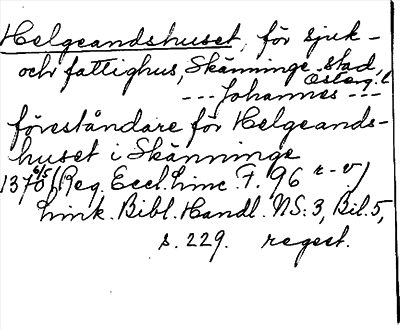 Helgeandshuset, för sjuk-
och fattighus, Skänninge stad
Österg. l.
--- Johannes ---
föreståndare för Helgeands-
huset i Skänninge
1370 6/5 (Reg. Eccl. Linc. F. 96 r-v)
Link. Bibl. Handl. NS: 3, Bil. 5,
s. 229. regest.